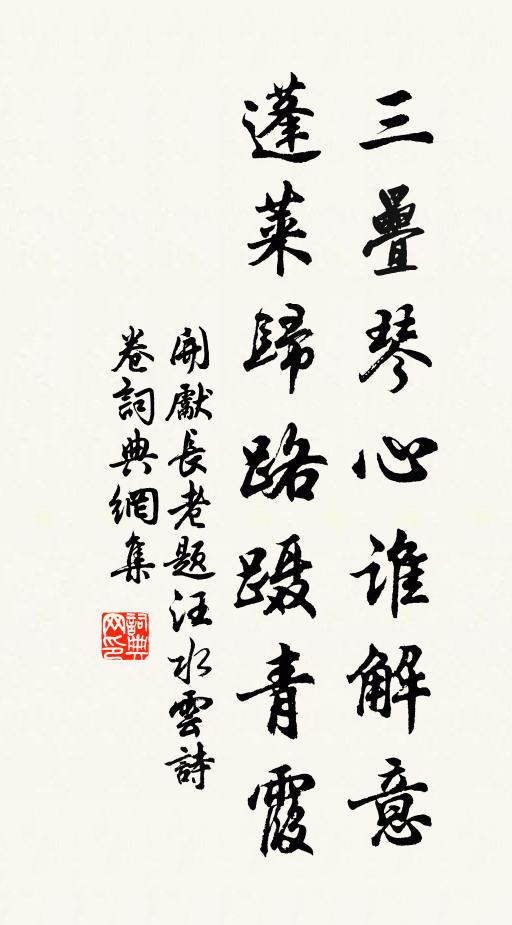 三疊琴心誰解意
蓬萊歸路躡青霞
開獻長老題汪水雲詩
卷詞典網集
詞典
网印